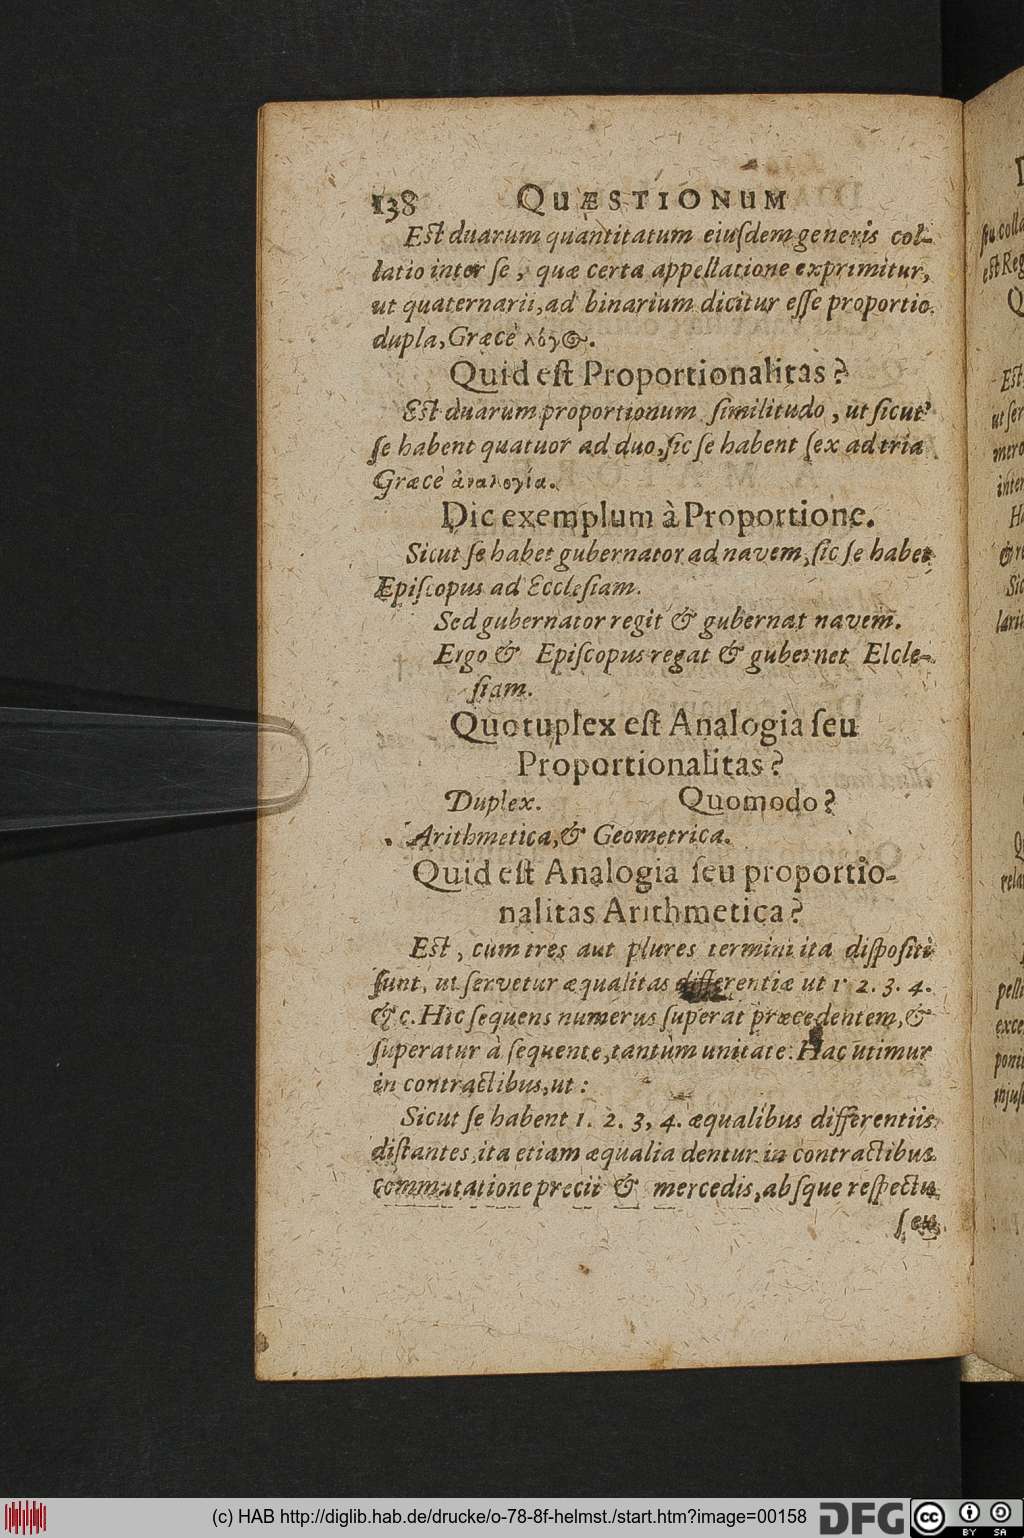 138 QUÆSTIONUM
Est duarum quantitatum eiuſdem generis col-
latio inter ſe, quæ certa appellatione exprimitur,
ut quaternarii, ad binarium dicitur eſſe proportio
dupla, Græcè λόγος.
Quid eſt Proportionalitas?
Est duarum proportionum ſimilitudo, ut ſicut
ſe habent quatuor ad duo, ſic ſe habent ſex ad tria
Græcè ἀναλογία.
Dic exemplum à Proportione.
Sicut ſe habet gubernator ad navem, ſic ſe habet
Epiſcopus ad Eccleſiam.
Sed gubernator regit & gubernat navem.
Ergo & Epiſcopus regat & gubernet Elcle-
ſiam.
Quotuplex eſt Analogia ſeu
Proportionalitas?
Duplex. Quomodo?
Arithmetica, & Geometrica.
Quid eſt Analogia ſeu proportio-
nalitas Arithmetica?
Est, cum tres aut plures termini ita diſpoſiti
ſunt, ut ſervetur æqualitas differentiæ ut 1. 2. 3. 4.
&c. Hic ſequens numerus ſuperat præcedentem, &
ſuperatur à ſequente, tantùm unitate. Hac utimur
in contractibus, ut:
Sicut ſe habent 1. 2. 3, 4. æqualibus differentiis
diſtantes, ita etiam æqualia dentur in contractibus
commutatione precii & mercedis, abſque reſpectu
ſeu
ſeu colla
est Reg
Q
Est
ut ſer
mero
inter
H
& r
Sic
larit
Q
rela
pelli
exce
poni
injuſ
(c) HAB http://diglib.hab.de/drucke/o-78-8f-helmst./start.htm?image=00158
DFG
cc BY SA